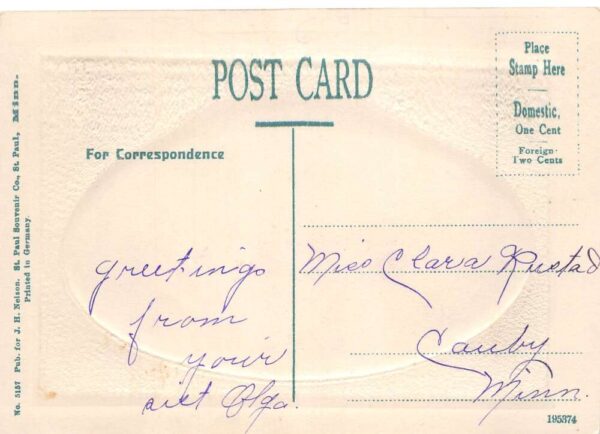 POST CARD
Place
Stamp Here
Domestic,
One Cent
Foreign-
Two Cents
For Correspondence
greetings
from
your
sist Olga.
Miss Clara Rustad
Canby
Minn.
No. 5157 Pub. for J. H. Nelson, St. Paul Souvenir Co., St. Paul, Minn.
Printed in Germany.
195374